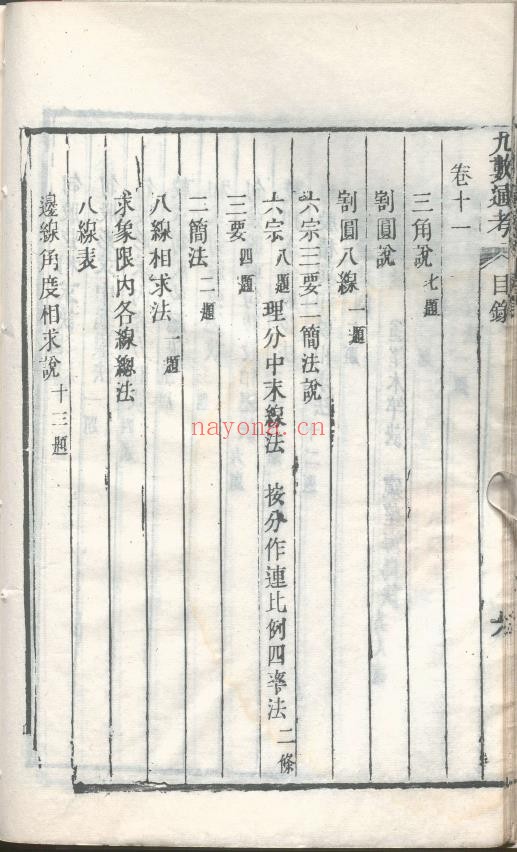 九數通考 目錄 六
卷十一
三角說 七題
割圓說
割圓八線 一題
六宗三要二簡法說
六宗 八題 理分中末線法 按分作連比例四率法 二條
三要 四題
二簡法 二題
八線相求法 一題
求象限內各線總法
八線表
邊線角度相求說 十三題
nayona.cn